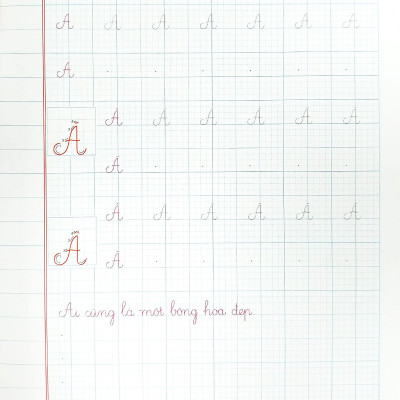 A A A A A A A
A
Ă Ă Ă Ă Ă Ă Ă
Ă
Â Â Â Â Â Â Â
Â
Ai cũng là một bông hoa đẹp.